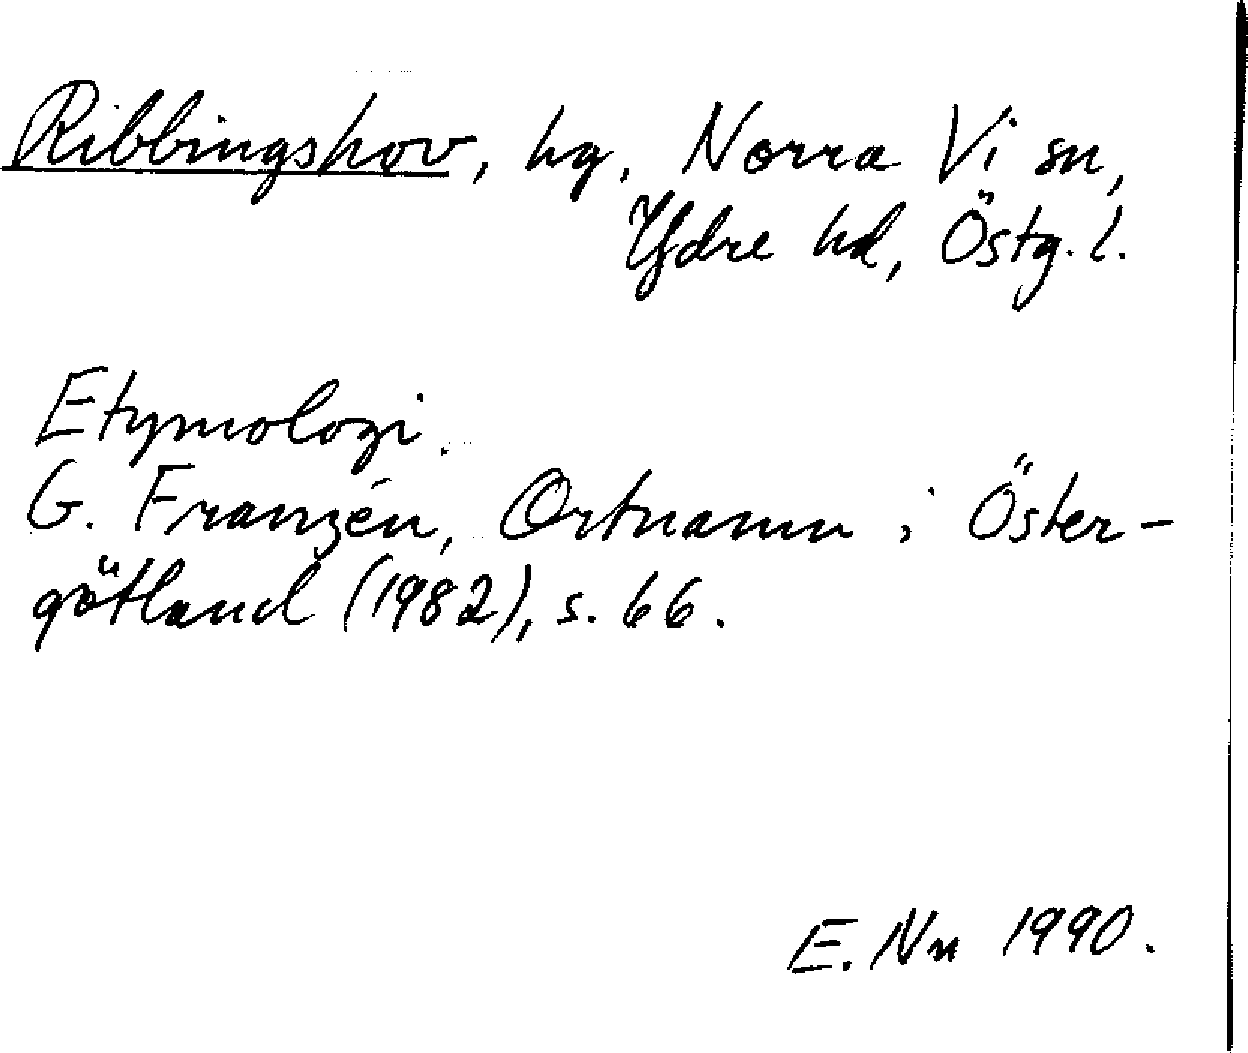 Ribbingshov, hg, Norra Vi sn,
Ydre hd, Östg. l.
Etymologi.
G. Franzén, Ortnamn i Öster-
götland (1982), s. 66.
E. Nn 1990.